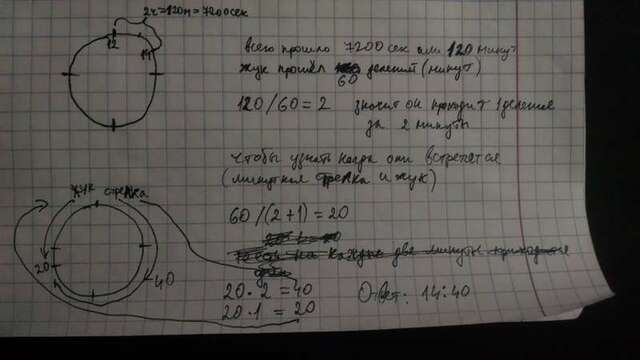 2ч=120м=7200сек
12
14
всего прошло 7200 сек или 120 минут
жук прошёл 60 делений (минут)
120/60=2 значит он проходит 1 деление
за 2 минуты
Чтобы узнать когда они встретятся
(минутная стрелка и жук)
жук стрелка
60/(2+1)=20
то есть на каждые две минуты приходится
20
40
20·2=40
20·1=20
Ответ: 14:40